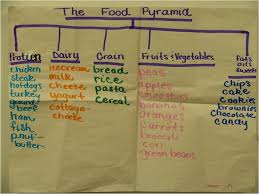 The Food Pyramid
Protien
chicken
steak
hotdogs
turkey
ground
beef
ham
fish
nut
butter
Dairy
icecream
milk
cheese
yogurt
cottage-
cheese
Grain
bread
rice
pasta
cereal
Fruits & Vegetables
pears
apples
smoothies
bananas
oranges
carrots
broccoli
corn
green beans
Fats
oils
sweets
chips
cake
cookies
brownies
chocolate
candy